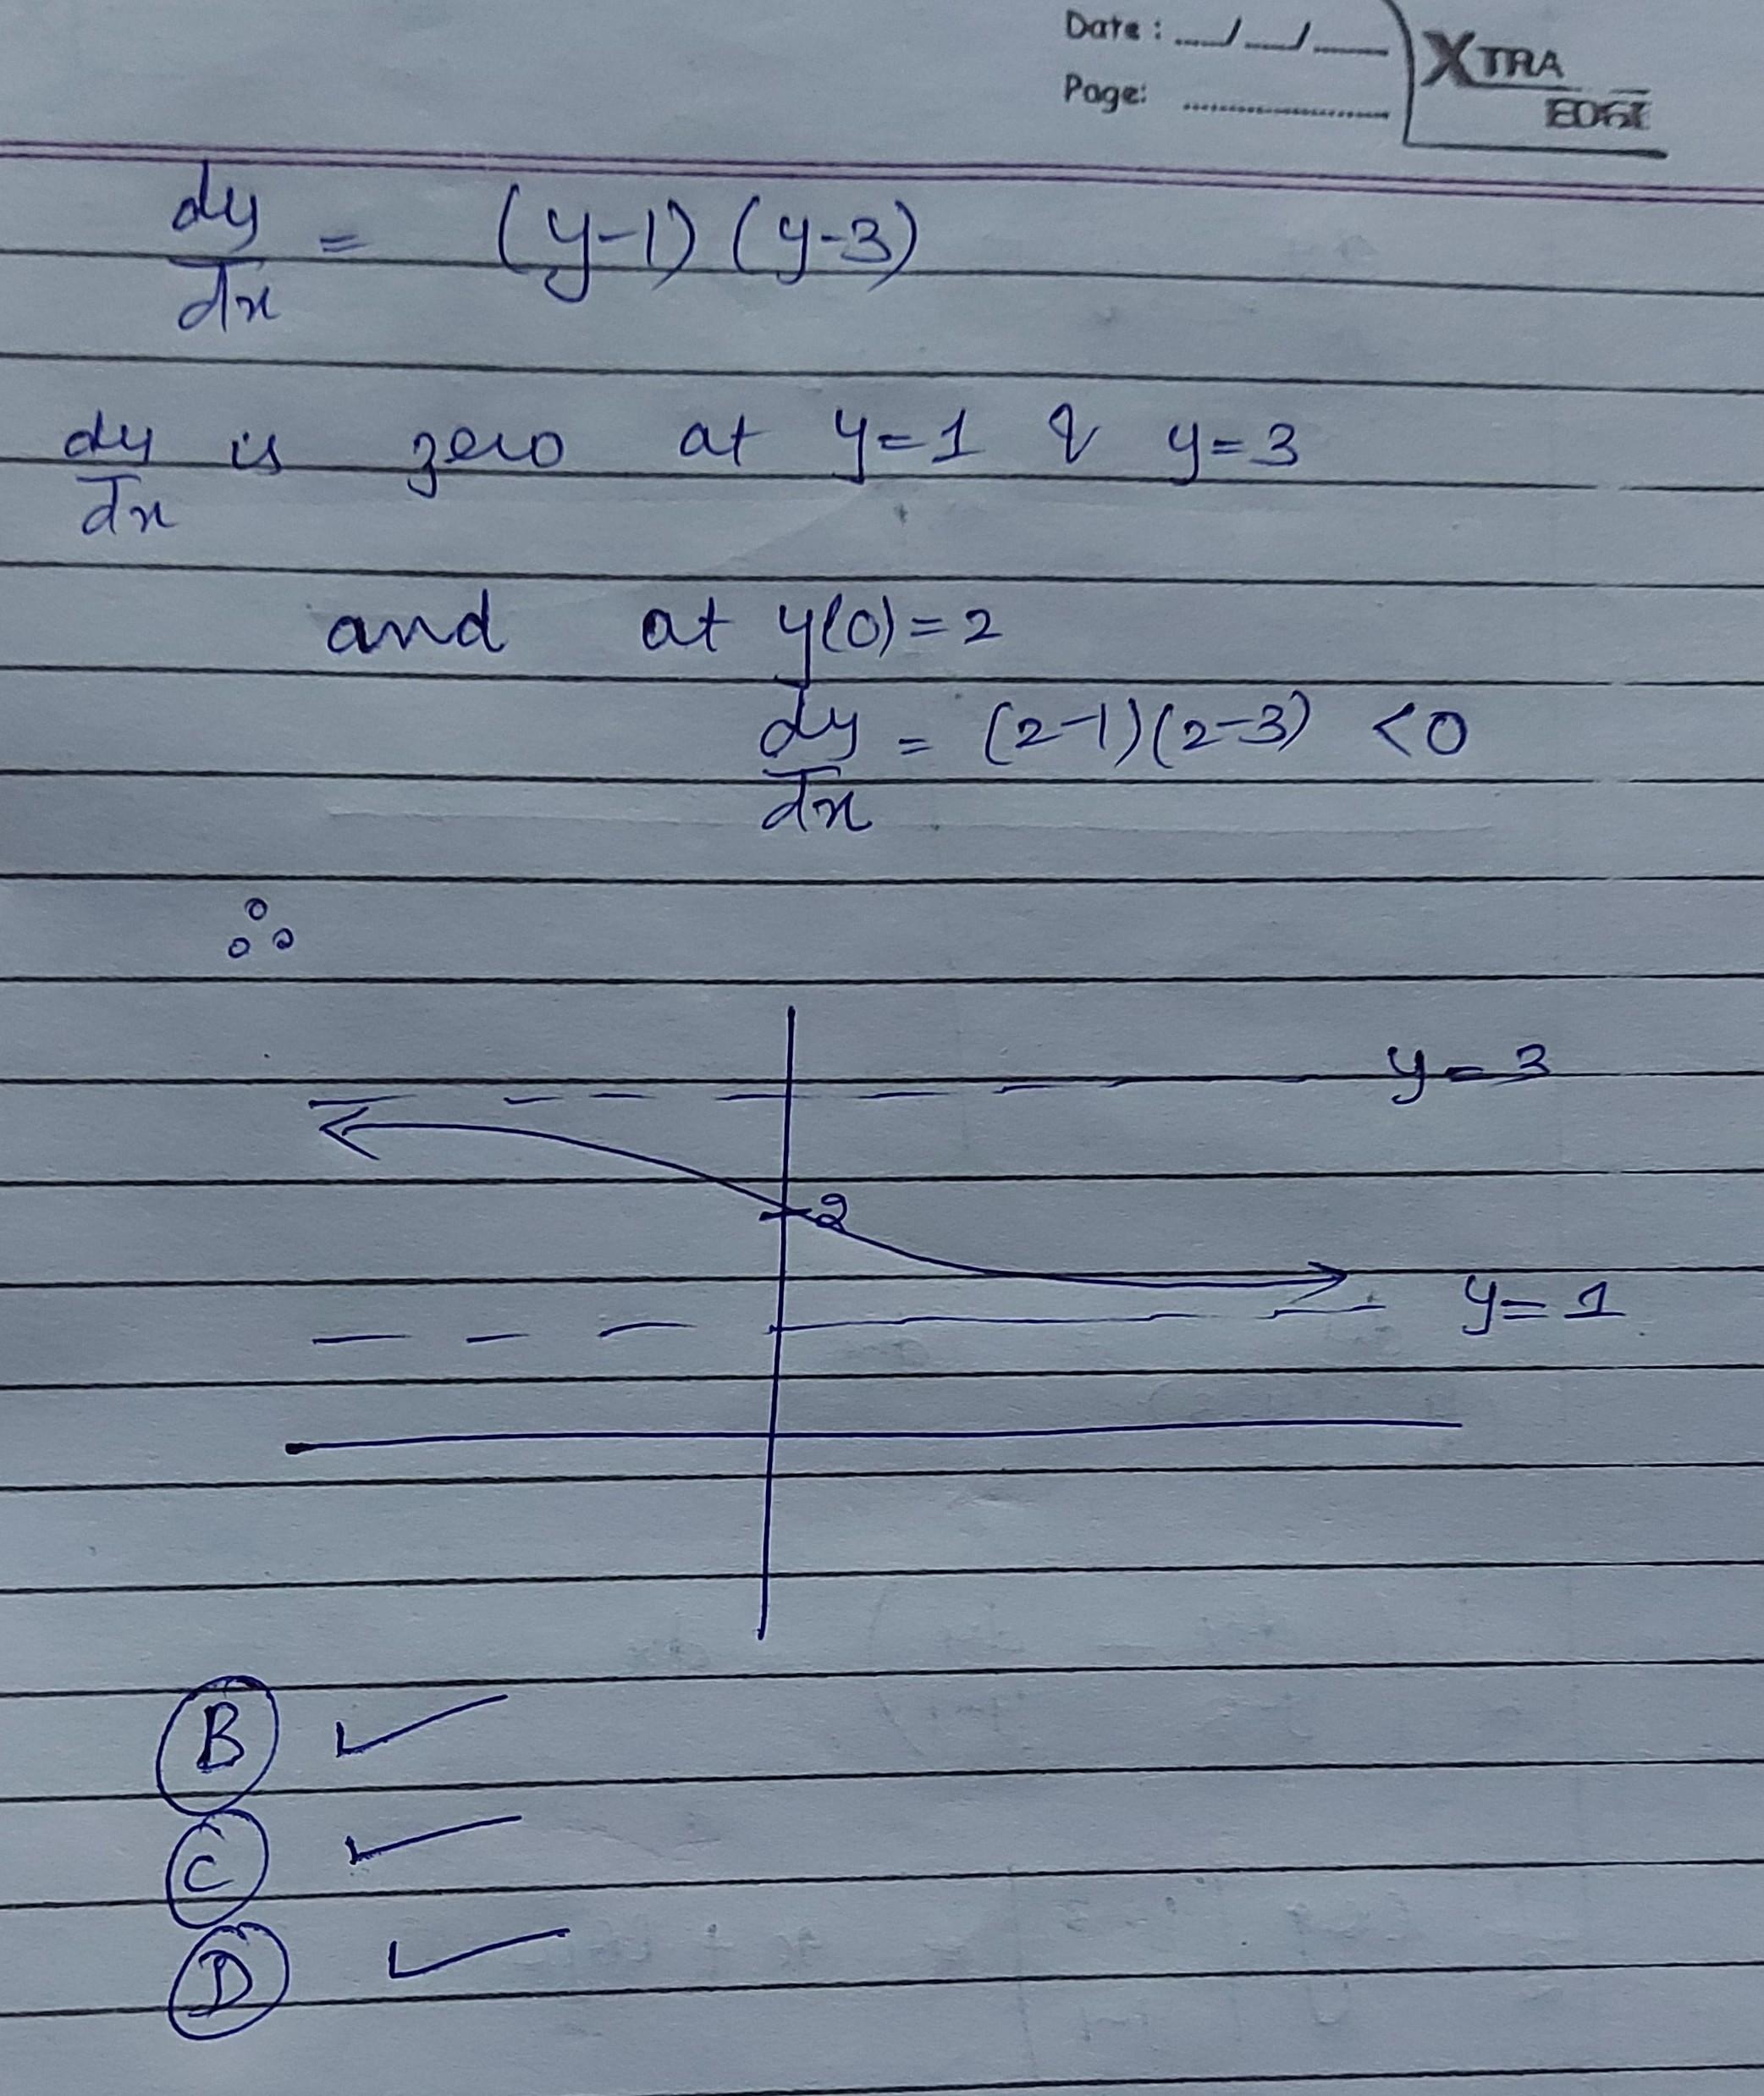 Date : ...../...../.....
Page: ..................
XTRA
EDGE
dy/dx = (y-1) (y-3)
dy/dx is zero at y=1 & y=3
and at y(0)=2
dy/dx = (2-1)(2-3) <0
∴
y=3
2
y=1
B ✓
C ✓
D ✓